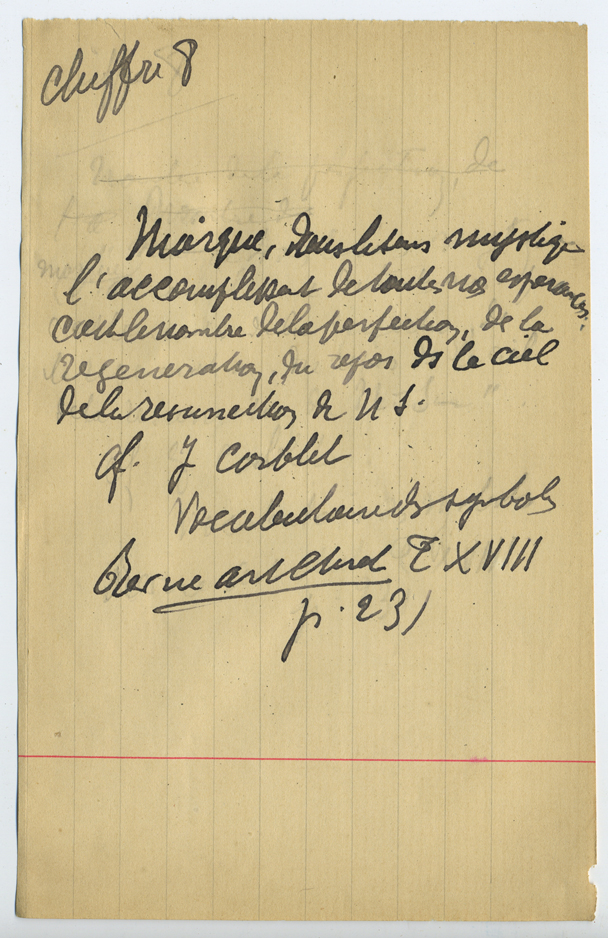 chiffre 8
Marque, dans le sens mystique
l'accomplissement de toutes nos esperances.
c'est le nombre de la perfection, de la
regeneration, du repos ds le ciel
de la resurrection de N S.
cf. J Corblet
Vocabulaire des symboles
Revue art Chret T XVIII
p. 231